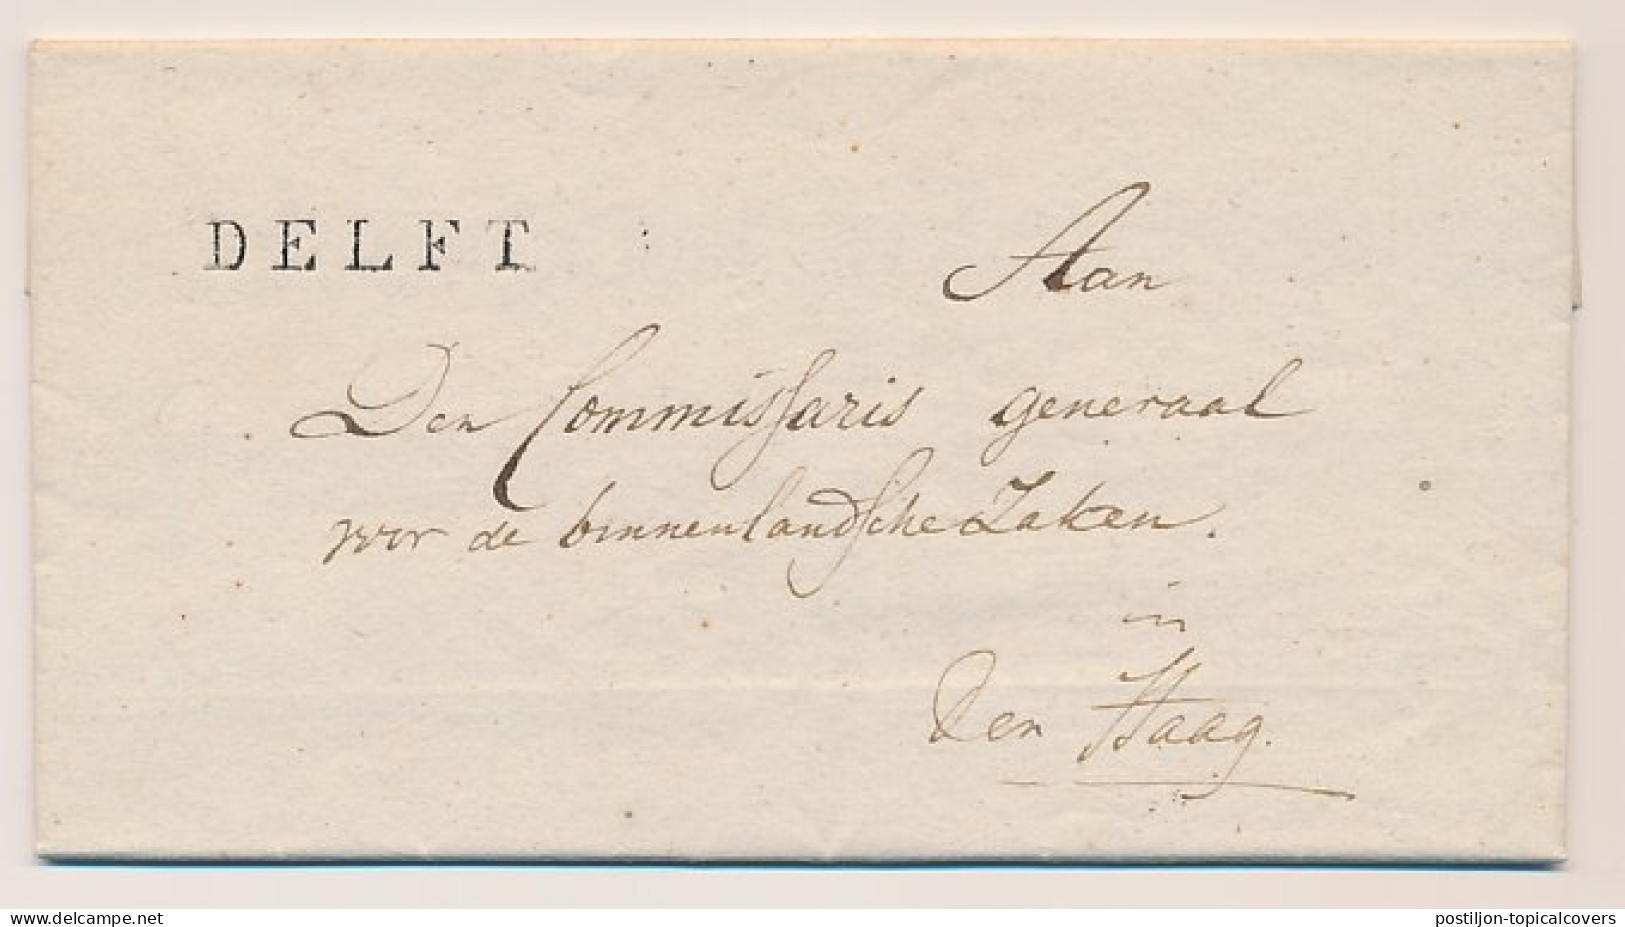 DELFT
Aan
Den Commissaris generaal
voor de binnenlandsche Zaken.
in
Den Haag.
www.delcampe.net
postiljon-topicalcovers